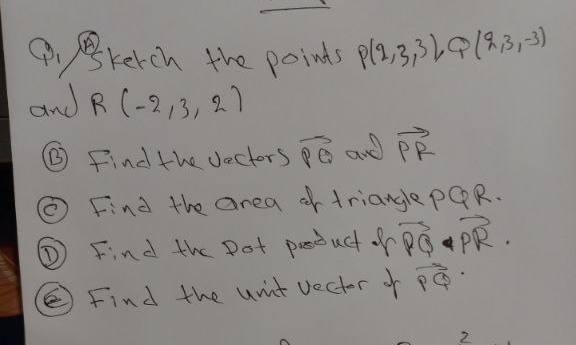 Q1/ Ⓐ Sketch the points P(2,3,3), Q(2,3,-3)
and R (-2,3,2)
Ⓑ Find the vectors \overrightarrow{PQ} and \overrightarrow{PR}
Ⓒ Find the area of triangle PQR.
Ⓓ Find the Dot product of \overrightarrow{PQ} • \overrightarrow{PR}.
Ⓔ Find the unit vector of \overrightarrow{PQ}.
2